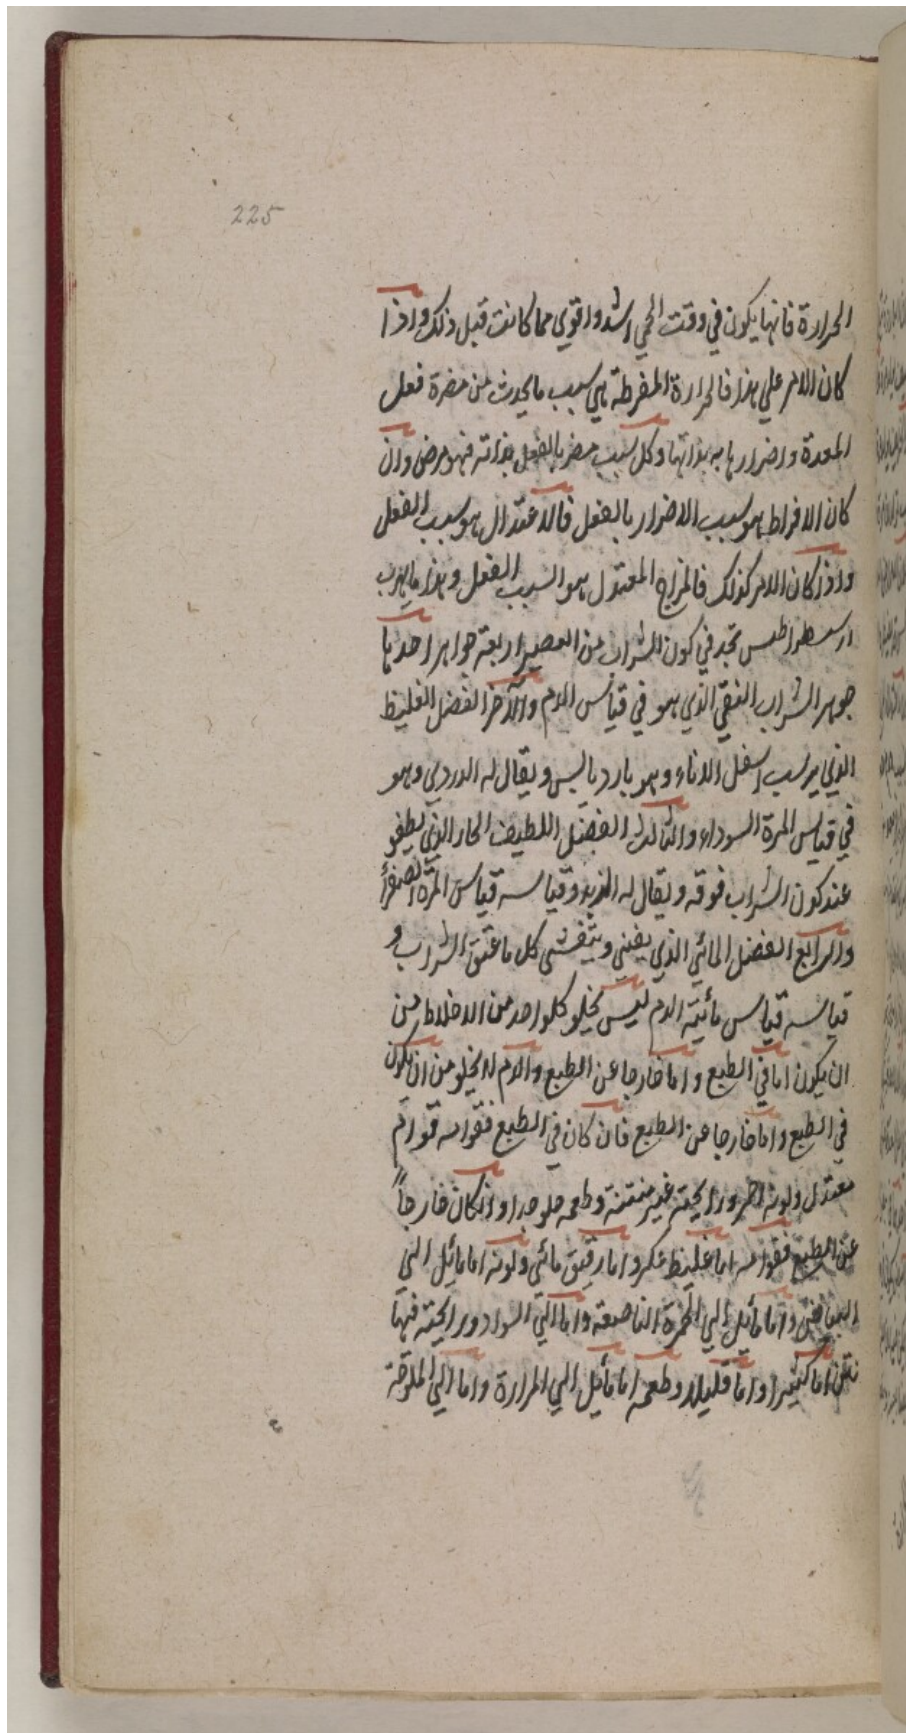 225
الحرارة فانها يكون في وقت الحمي اشد واقوي مما كانت قبل ذلك واذا
كان الامر علي هذا فالحرارة المفرطة هي سبب ما يحدث من مضرة فعل
المعدة واضرارها به بذاتها وكل سبب مضر بالفعل بذاته فهو مرض وان
كان الافراط هو سبب الاضرار بالفعل فالاعتدال هو سبب الفعل
واذا كان الامر كذلك فالمزاج المعتدل هو السبب الفعل وهذا مذهب
ارسطراطس تجد في كون الشراب من العصير اربعة جواهر احدها
جوهر الشراب النقي الذي هو في قياس الدم والآخر الفضل الغليظ
الذي يرسب اسفل الاناء وهو بارد يابس ويقال له الدردي وهو
في قياس المرة السوداء والثالث الفضل اللطيف الحار الذي يطفو
عند كون الشراب فوقه ويقال له الزبد وقياسه قياس المرة الصفرا
والرابع الفضل المائي الذي يفني ويتفشي كل ما عتق الشراب و
قياسه قياس مائية الدم ليس يخلو كلواحد من الاخلاط من
ان يكون اما في الطبع واما خارجا عن الطبع والدم لا يخلو من ان يكون
في الطبع واما خارجا عن الطبع فان كان في الطبع فقوامه قوام
معتدل ولونه احمر ورايحته غير منتنة وطعمه حلو جدا وان كان خارجاً
عن الطبع فقوامه اما غليظ عكر واما رقيق مائي ولونه اما مائل الي
البياض واما مائل الي الحمرة الناصعة واما الي السواد ورايحته فيها
نتن اما كثيرا واما قليلا وطعمه اما مائل الي المرارة واما الي الملوحة